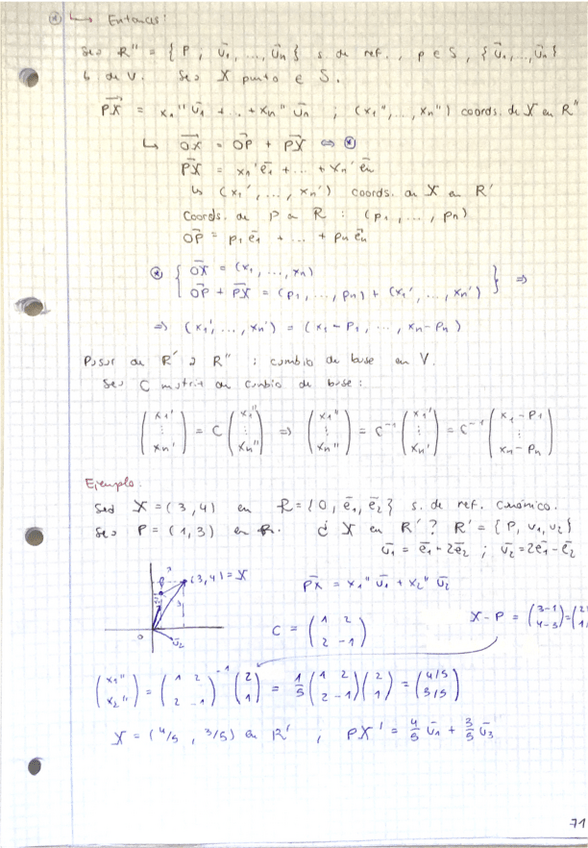 ⊛ ↳ Entonces:
Sea R'' = { P ; ū₁, ..., ūn } s. de ref., p ∈ S, {ū₁, ..., ūn}
b de V. Sea X punto ∈ S.
PX = x₁'' ū₁ + .. + xn'' ūn ; (x₁'', ..., xn'') coords. de X en R''
↳ OX = OP + PX ⇔ ⊛
PX = x₁' ē₁ + ... + xn' ēn
↳ (x₁', ..., xn') coords. de X en R'
Coords. de P en R : (p₁, ..., pn)
OP = p₁ ē₁ + ... + pn ēn
⊛ { OX = (x₁, ..., xn)
OP + PX = (p₁, ..., pn) + (x₁', ..., xn') } ⇒
⇒ (x₁', ..., xn') = (x₁-p₁, ..., xn-pn)
Pasar de R' a R'' : cambio de base en V.
Sea C matriz de cambio de base:
(x₁' ⋮ xn') = C (x₁'' ⋮ xn'') ⇒ (x₁'' ⋮ xn'') = C⁻¹ (x₁' ⋮ xn') = C⁻¹ (x₁-p₁ ⋮ xn-pn)
Ejemplo.
Sea X = (3,4) en R = {0, ē₁, ē₂} s. de ref. canónico.
Sea P = (1,3) en R. ¿ X en R' ? R' = {P, v₁, v₂}
ū₁ = ē₁ - 2ē₂ ; ū₂ = 2ē₁ - ē₂
(3,4) = X
0
ū₂
PX = x₁'' ū₁ + x₂'' ū₂
C = (1 2 / 2 -1)
X - P = (3-1 / 4-3) = (2 / 1)
(x₁'' / x₂'') = (1 2 / 2 -1)⁻¹ (2 / 1) = 1/5 (1 2 / 2 -1) (2 / 1) = (4/5 / 3/5)
X = (4/5, 3/5) en R' ; PX' = 4/5 ū₁ + 3/5 ū₃
71